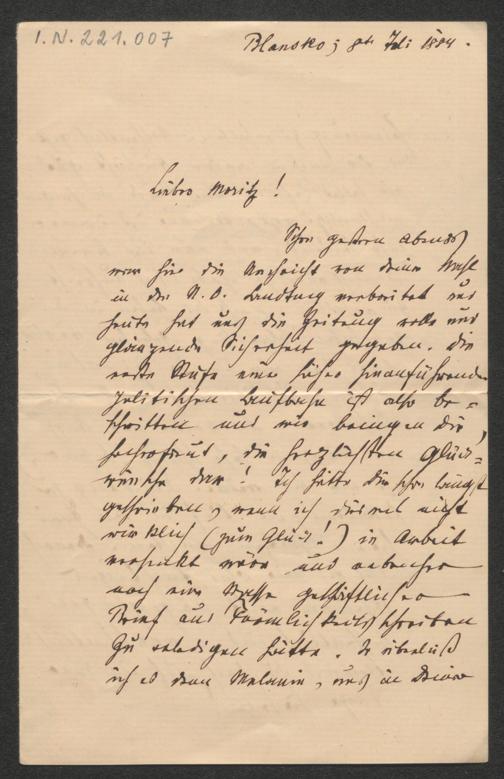 I.N. 221.007
Blansko, 8t Juli 1884.
Lieber Moritz!
Schon gestern abends
war hier die Nachricht von deiner Wahl
in den N. O. Landtag verbreitet und
heute hat uns die Zeitung volle und
glänzende Sicherheit gegeben. Die
erste Stufe einer höher hinaufführenden
politischen Laufbahn ist also be-
schritten und wir bringen dir
hocherfreut, die herzlichsten Glück-
wünsche dar! Ich hätte dir schon längst
geschrieben, wenn ich diesmal nicht
wirklich (zum Glück!) in Arbeit
versenkt wäre und nebenher
noch eine Masse geschäftlicher
Brief und Förmlichkeitsschreiben
zu erledigen hätte. So überließ
ich es dem Melanie, uns in Deiner